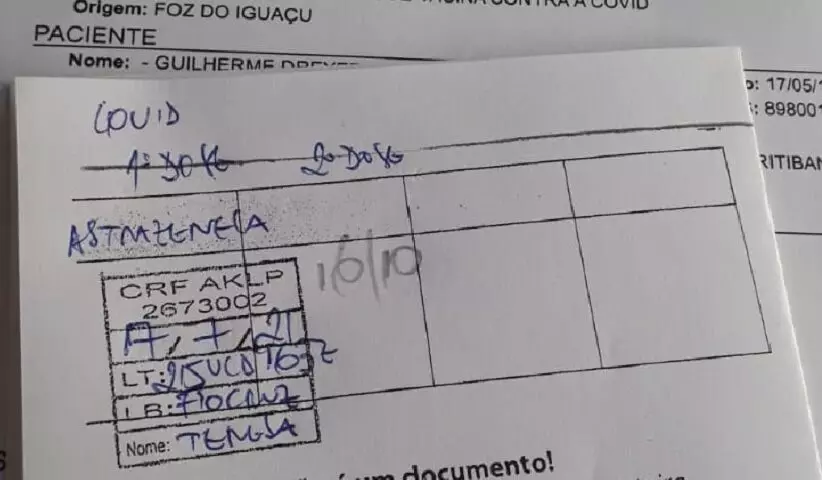 Origem: FOZ DO IGUAÇU
CONTRA A COVID
PACIENTE
Nome: - GUILHERME
17/05/
898001
COVID
1ª DOSE 2ª DOSE
ASTRAZENECA
16/10
CRF AKLP
2673002
17, 7, 21
LT:
LB: FIOCRUZ
Nome:
um documento!